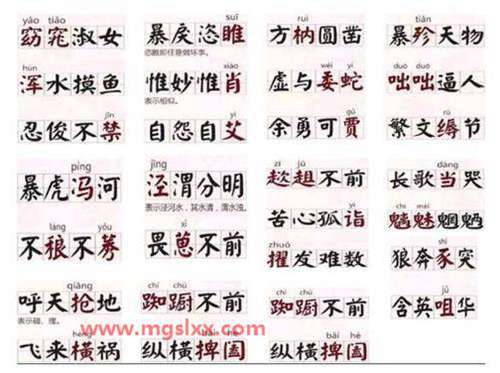 yǎo tiǎo suī ruì tiǎn
窈窕淑女 暴戾恣睢 方枘圆凿 暴殄天物
hún xiào wēi yí duō duō
浑水摸鱼 惟妙惟肖 虚与委蛇 咄咄逼人
表示相似。
jīn yì gǔ rù
忍俊不禁 自怨自艾 余勇可贾 繁文缛节
píng jīng zī jū dàng
暴虎冯河 泾渭分明 趑趄不前 长歌当哭
表示泾河水，其水清，渭水浊。
láng yǒu xǐ yì chī mèi
不稂不莠 畏葸不前 苦心孤诣 魑魅魍魉
zhuó shǐ
擢发难数 狼奔豕突
qiāng chí chú chí chú jǔ
呼天抢地 踟蹰不前 踟蹰不前 含英咀华
表示碰、撞。
www.mgslxx.com
hèng bǎi hé bǎi hé
飞来横祸 纵横捭阖 纵横捭阖